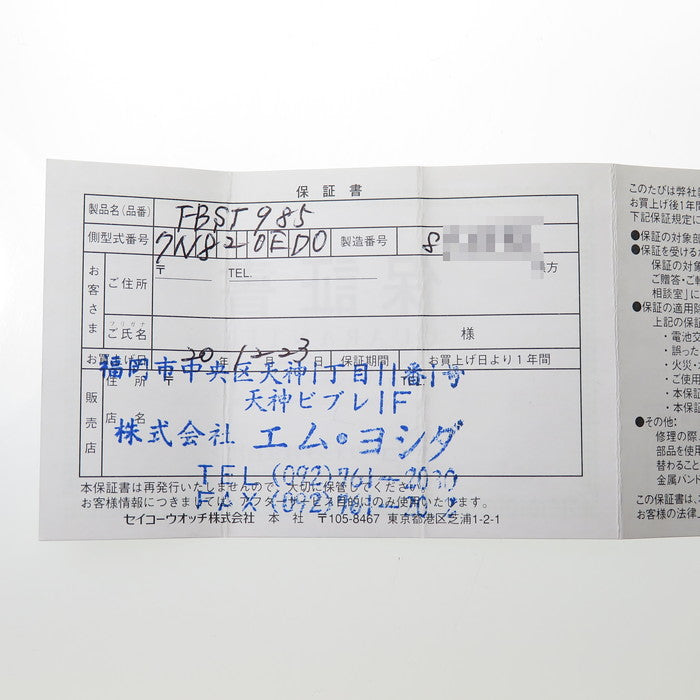 保証書
製品名(品番) TBST985
側型式番号 7N82-0ED0 製造番号 8
お客さま ご住所 〒 TEL. 方
フリガナ
ご氏名 様
お買上げ日 20年 12 23日 保証期間 お買上げ日より1年間
販売店 住所 〒
店名
福岡市中央区天神1丁目11番1号
天神ビブレ1F
株式会社 エム・ヨシダ
TEL(092)761-2030
FAX(092)761-
本保証書は再発行いたしませんので、大切に保管してください。
お客様情報につきましては、アフターサービス目的にのみ使用いたします。
セイコーウオッチ株式会社 本社 〒105-8467 東京都港区芝浦1-2-1
このたびは弊社
お買上げ後1年間
下記保証規定に
●保証の対象部
●保証を受けるた
保証の対象
ご贈答・ご転
相談室」に
●保証の適用除
上記の保証
・電池交
・誤った
・火災・
・ご使用
・本保証
・本保証
●その他:
修理の際、
部品を使用
替わること
金属バンド
この保証書は、
お客様の法律